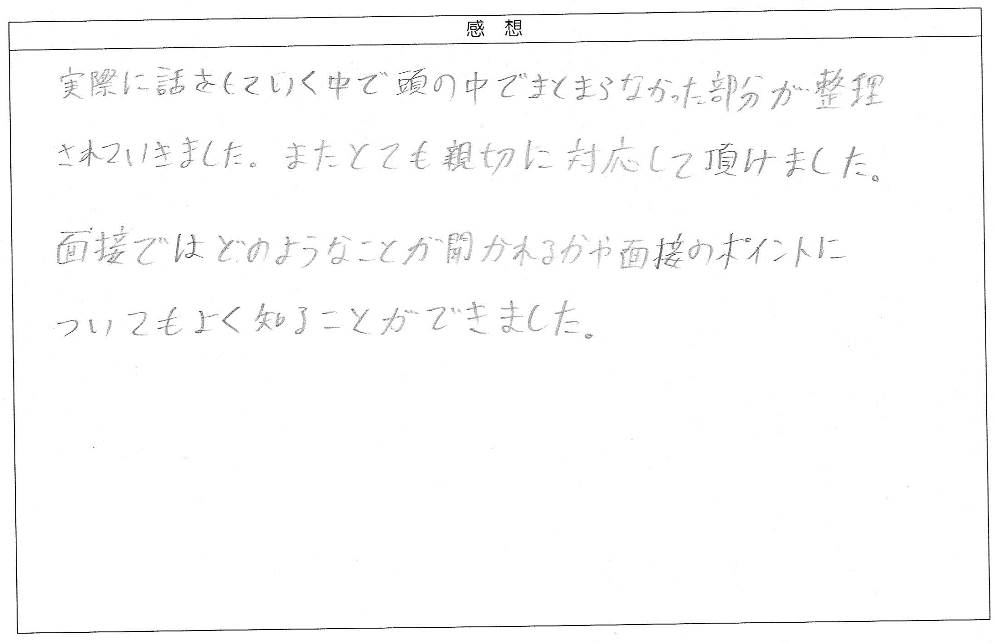 感想
実際に話をしていく中で頭の中でまとまらなかった部分が整理
されていきました。またとても親切に対応して頂けました。
面接ではどのようなことが聞かれるかや面接のポイントに
ついてもよく知ることができました。